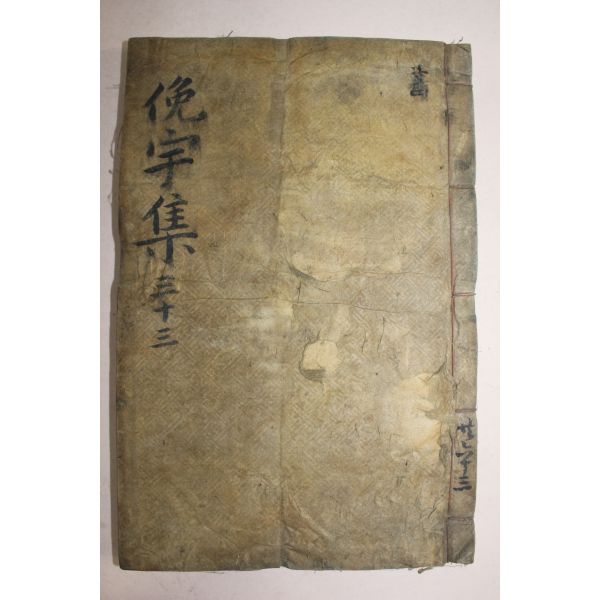 俛宇集 三十三
共六十三